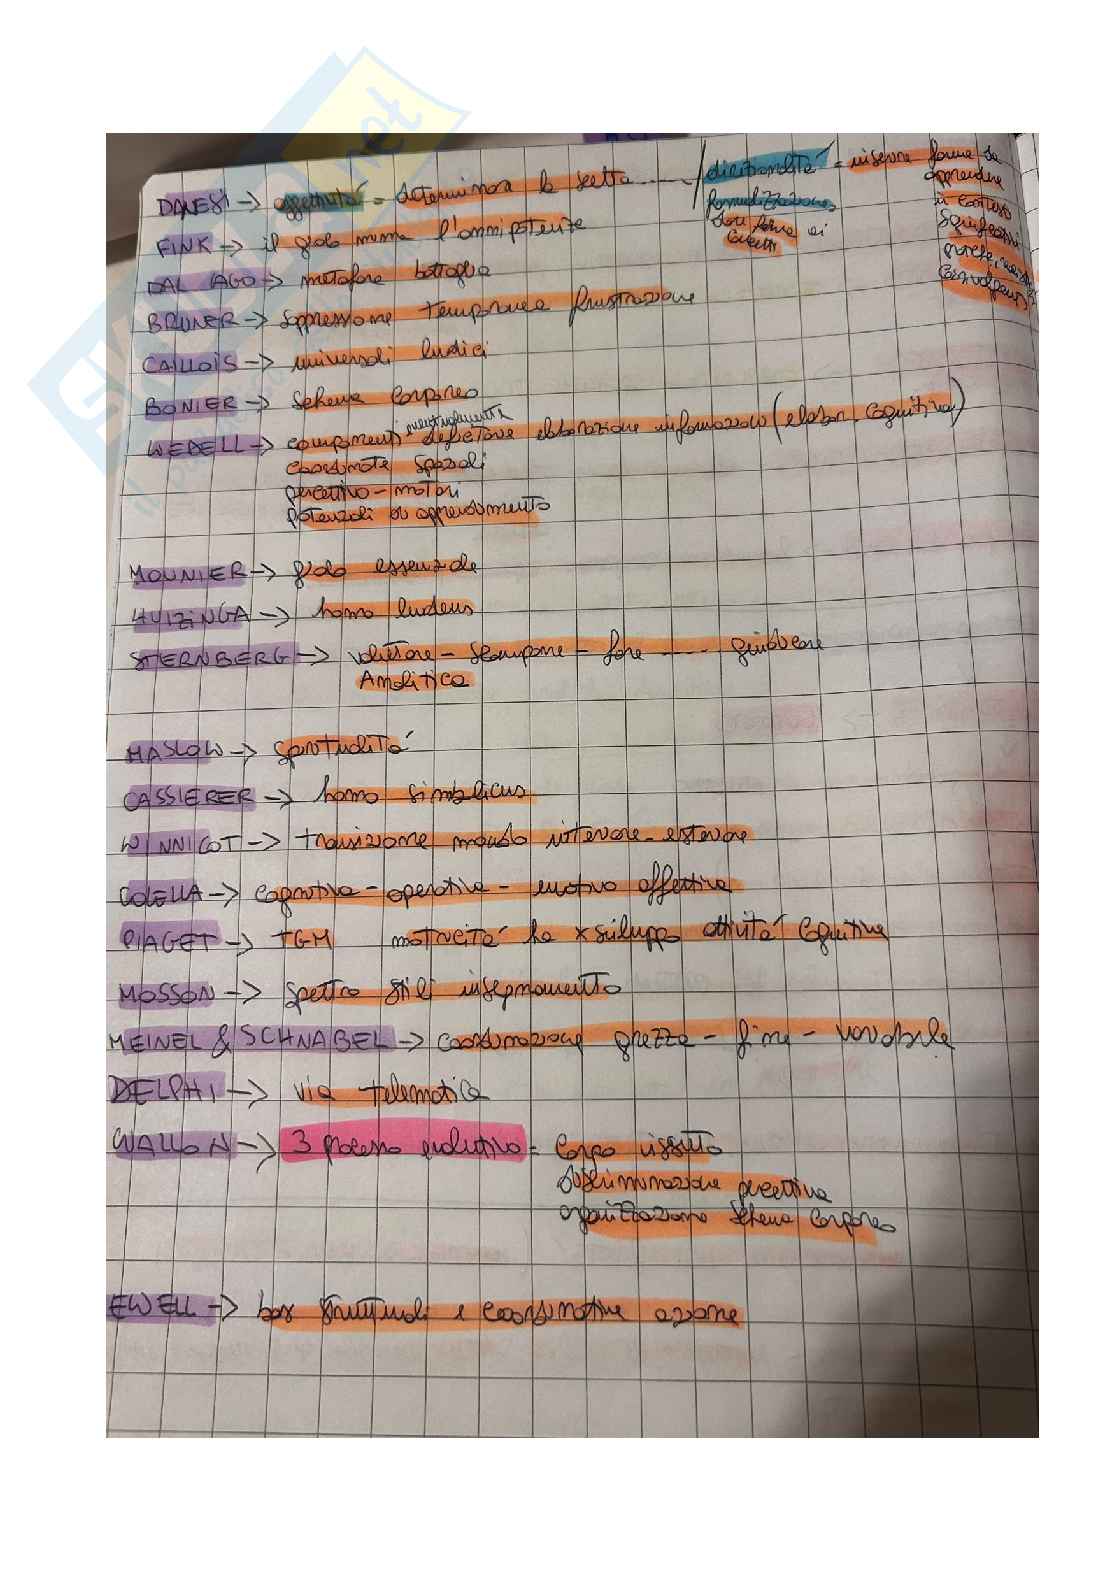 DANESI → affettività = determinare la scelta ...... / direzionalità = inserire forme da apprendere in contesto significativi
formalizzazione
dare forma ai concetti
FINK → il gioco mima l'onnipotenza
DAL LAGO → metafora battaglia
BRUNER → soppressione temporanea frustrazione
CAILLOIS → universali ludici
BONIER → schema corporeo
WEDELL → componenti eventualmente deficitarie elaborazione informazioni (elabor. cognitiva)
coordinate spaziali
percettivo - motori
potenziali di apprendimento
MOUNIER → gioco essenziale
HUIZINGA → homo ludens
STERNBERG → valutare - scomporre - fare ...... giudicare
Analitica
MASLOW → spiritualità
CASSIERER → homo simbolicus
WINNICOT → transizione mondo interiore - esteriore
COLELLA → cognitiva - operativa - emotivo affettiva
PIAGET → TGM motricità ha x sviluppo attività cognitiva
MOSSON → spettro stili insegnamento
MEINEL & SCHNABEL → coordinazione grezza - fine - variabile
DELPHI → via telematica
WALLON → 3 processo evolutivo = corpo vissuto
discriminazione percettiva
organizzazione schema corporeo
EWELL → basi strutturali e coordinative azione